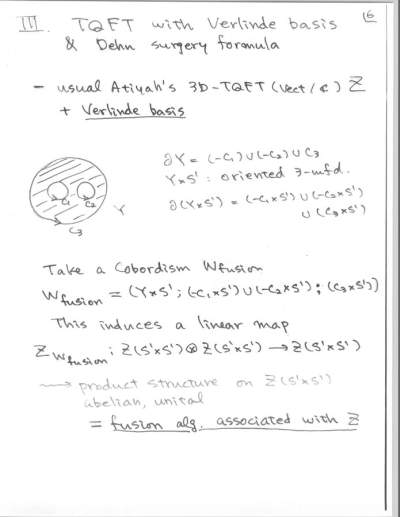 16
III. TQFT with Verlinde basis
& Dehn surgery formula
- usual Atiyah's 3D-TQFT (Vect/ℂ) Z
+ Verlinde basis
∂Y = (-C₁) ∪ (-C₂) ∪ C₃
Y×S¹ : oriented 3-mfd.
∂(Y×S¹) = (-C₁×S¹) ∪ (-C₂×S¹)
∪ (C₃×S¹)
C₁ C₂
Y
C₃
Take a Cobordism Wfusion
Wfusion = (Y×S¹ ; (-C₁×S¹) ∪ (-C₂×S¹) ; (C₃×S¹))
This induces a linear map
Z_Wfusion : Z(S¹×S¹) ⊗ Z(S¹×S¹) → Z(S¹×S¹)
⟿ product structure on Z(S¹×S¹)
abelian, unital
= fusion alg. associated with Z